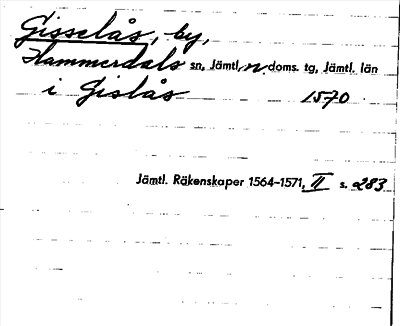 Gisselås, by,
Hammerdals sn, Jämtl. n. doms. tg, Jämtl. län
i Gislås 1570
Jämtl. Räkenskaper 1564-1571, II s. 283